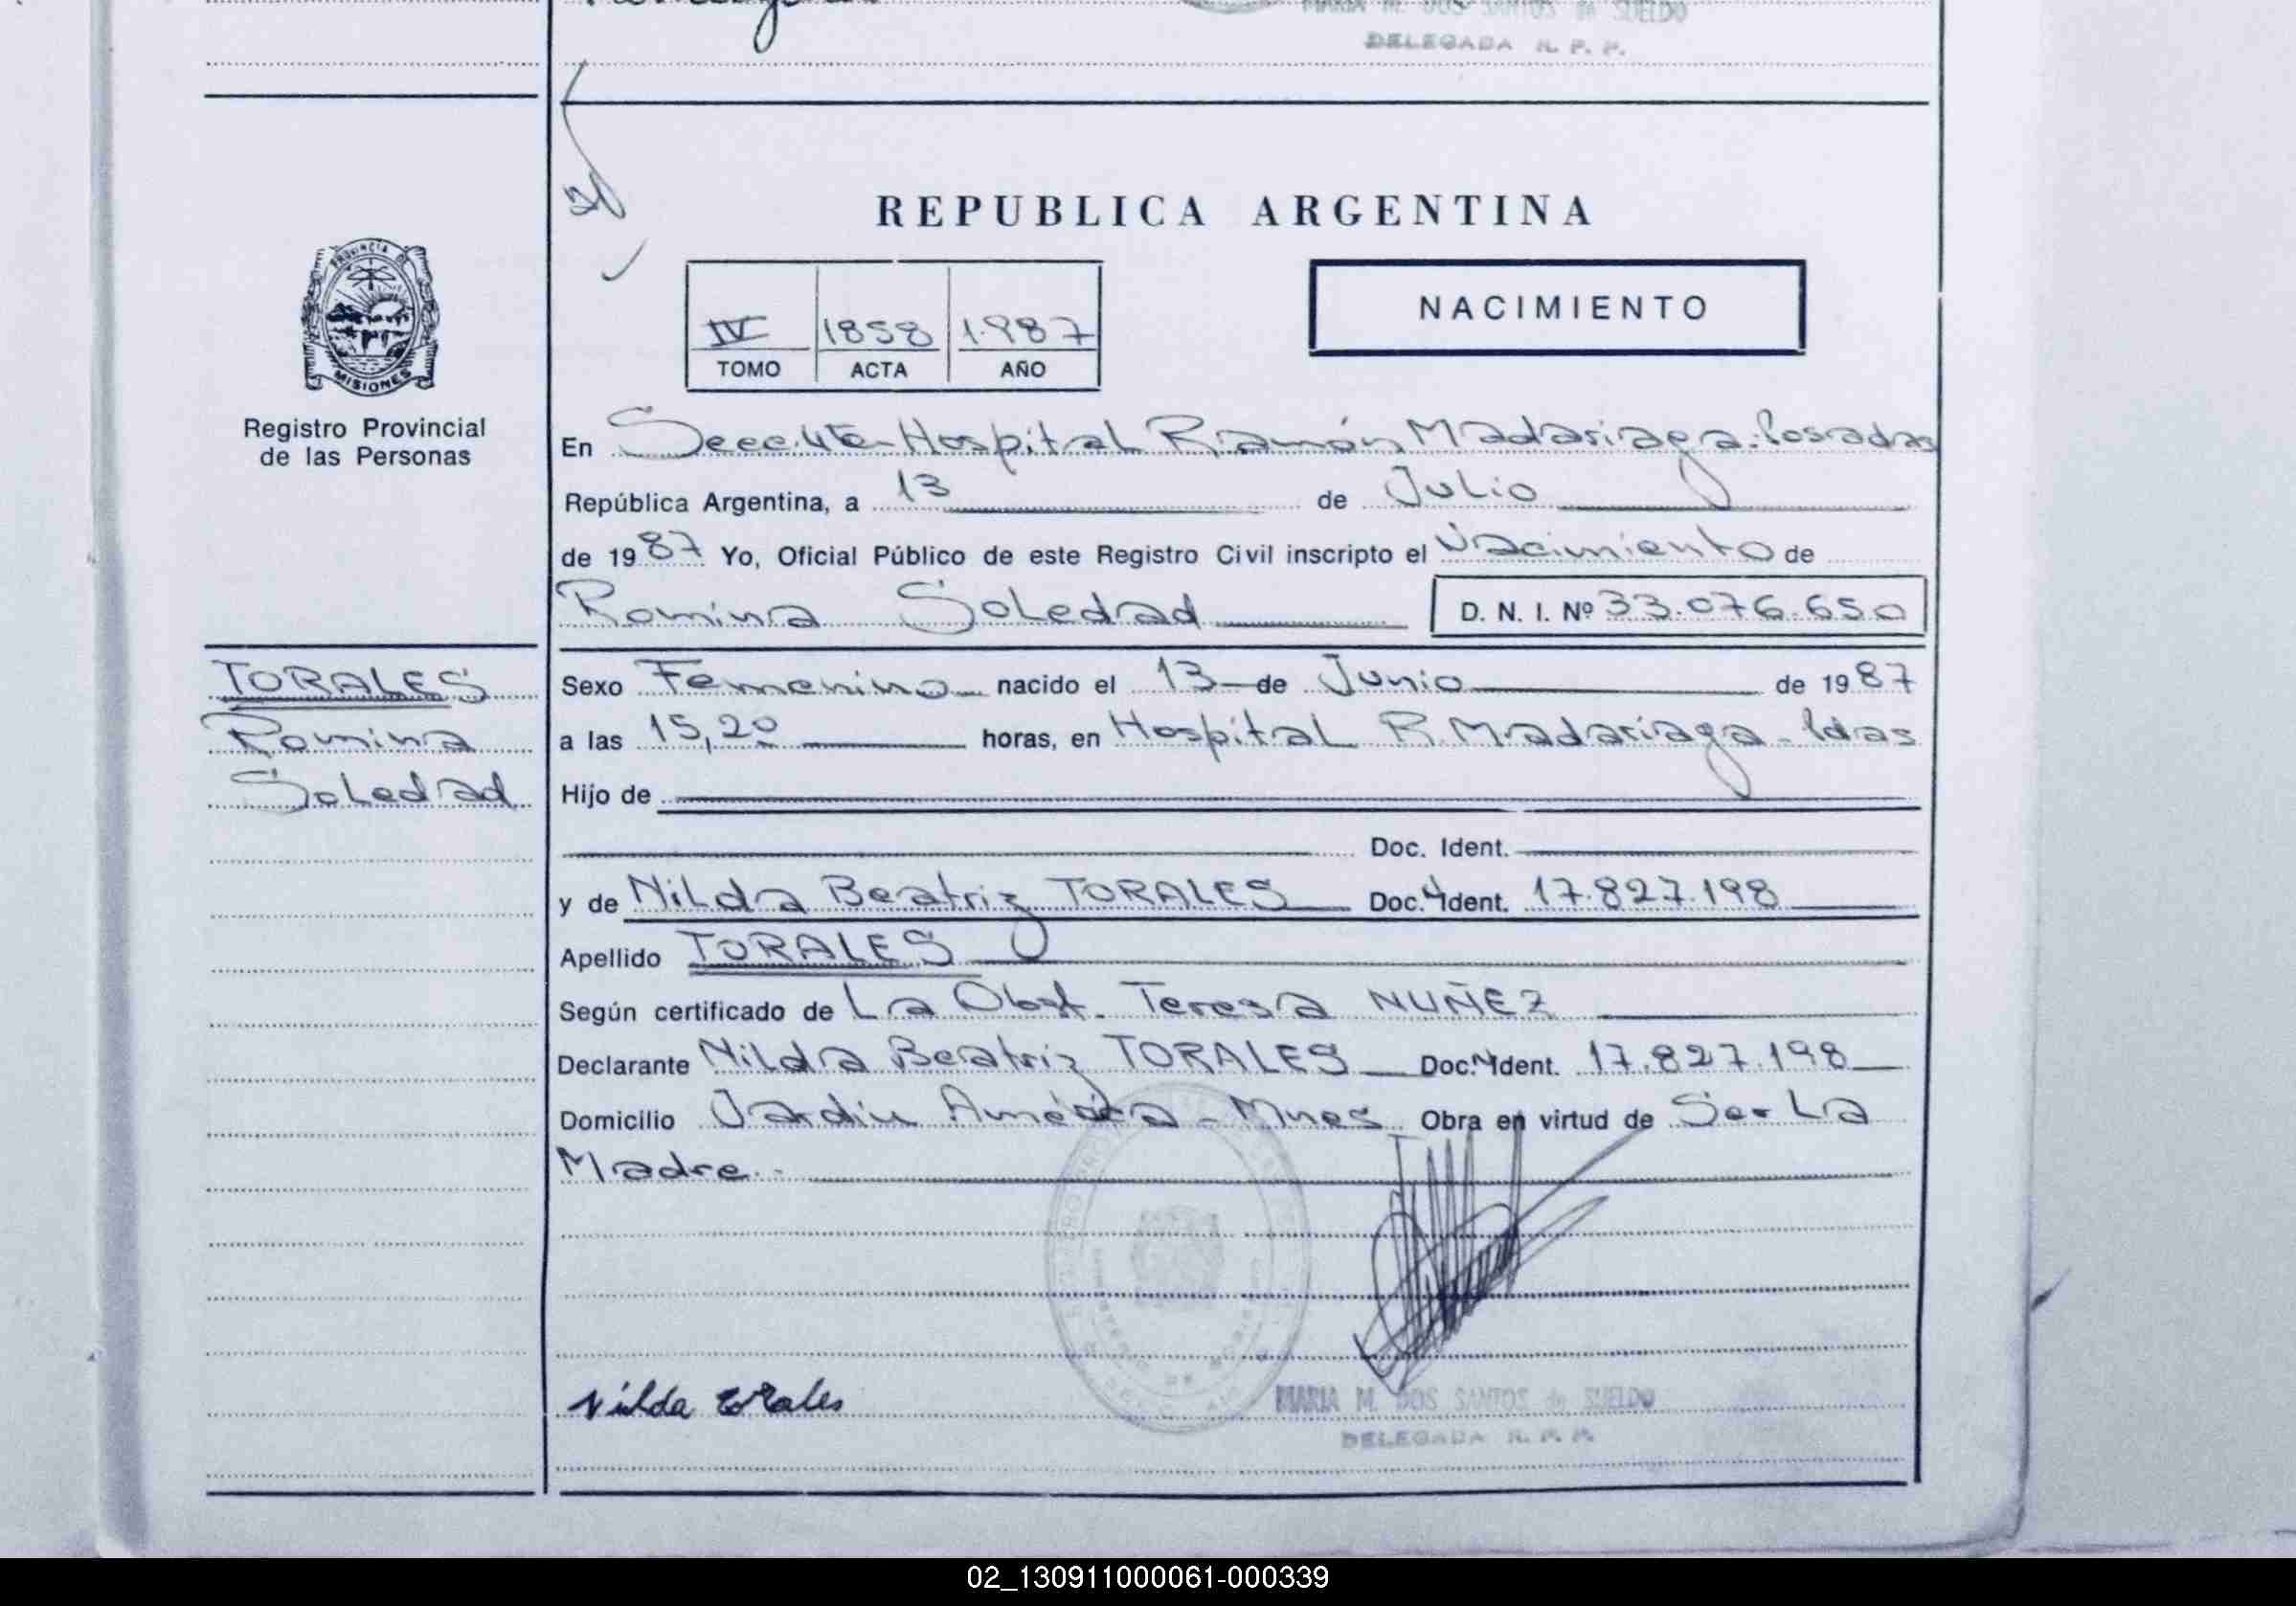 MARIA M. DOS SANTOS de SUELDO
DELEGADA R. P. P.
REPUBLICA ARGENTINA
PROVINCIA DE
MISIONES
Registro Provincial
de las Personas
IV 1858 1.987
TOMO ACTA AÑO
NACIMIENTO
En Secc. 4ta Hospital Ramón Madariaga. Posadas
República Argentina, a 13 de Julio
de 1987 Yo, Oficial Público de este Registro Civil inscripto el Nacimiento de
Romina Soledad D. N. I. Nº 33.076.650
TORALES
Romina
Soledad
Sexo Femenino nacido el 13 de Junio de 1987
a las 15,20 horas, en Hospital R. Madariaga - Pdas
Hijo de
Doc. Ident.
y de Nilda Beatriz TORALES Doc. Ident. 17.827.198
Apellido TORALES
Según certificado de La Obst. Teresa NUÑEZ
Declarante Nilda Beatriz TORALES Doc. Ident. 17.827.198
Domicilio Jardín América - Mnes Obra en virtud de Ser La
Madre.-
Nilda Torales
MARIA M. DOS SANTOS de SUELDO
DELEGADA R. P. P.
02_130911000061-000339